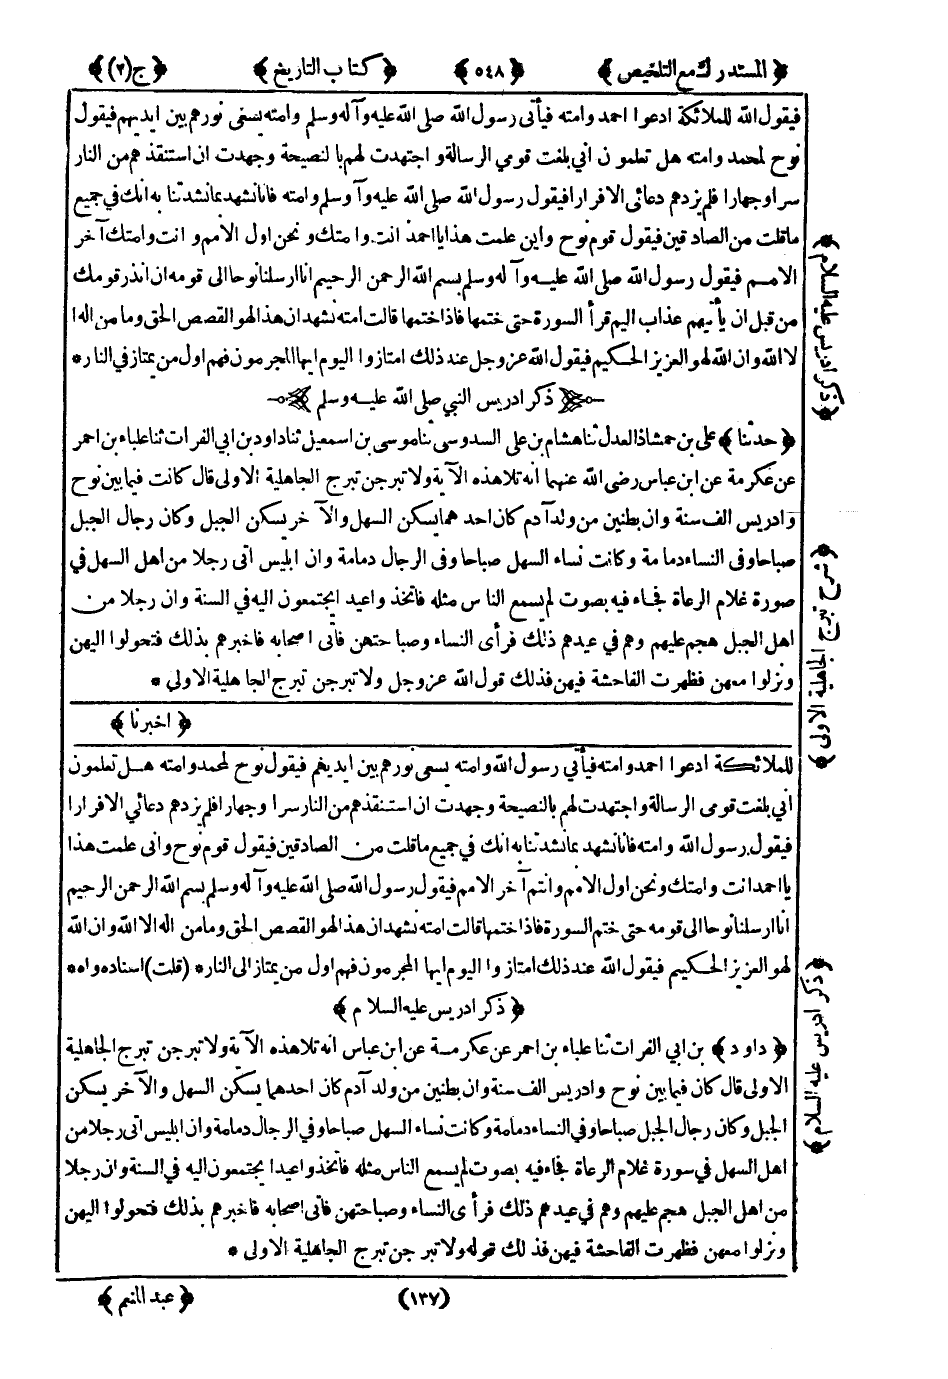 ﴿ المستدرك مع التلخيص ﴾ ﴿ ٥٤٨ ﴾ ﴿ كتاب التاريخ ﴾ ﴿ ج (٢) ﴾
فيقول الله للملائكة ادعوا احمد وامته فيأتى رسول الله صلى الله عليه وآله وسلم وامته يسعى نورهم بين ايديهم فيقول
نوح لمحمد وامته هل تعلمون اني بلغت قومي الرسالة واجتهدت لهم بالنصيحة وجهدت ان استنقذهم من النار
سرا وجهارا فلم يزدهم دعائى الا فرارا فيقول رسول الله صلى الله عليه وآ وسلم وامته فانا نشهد بما نشدتنا به انك في جميع
ماقلت من الصادقين فيقول قوم نوح واين علمت هذا يا احمد انت وامتك ونحن اول الامم وانت وامتك آخر
الامم فيقول رسول الله صلى الله عليه وآله وسلم بسم الله الرحمن الرحيم انا ارسلنا نوحا الى قومه ان انذر قومك
من قبل ان يأتيهم عذاب اليم قرأ السورة حتى ختمها فاذا ختمها قالت امته نشهد ان هذا لهو القصص الحق وما من اله ا
لا الله وان الله لهو العزيز الحكيم فيقول الله عز وجل عند ذلك امتازوا اليوم ايها المجرمون فهم اول من يمتاز في النار *
ذكر ادريس النبي صلى الله عليه وسلم
﴿ حدثنا ﴾ على بن حمشاذ العدل ثنا هشام بن على السدوسى ثنا موسى بن اسمعيل ثنا داود بن ابي الفرات ثنا علباء بن احمر
عن عكرمة عن ابن عباس رضى الله عنهما انه تلا هذه الآية ولا تبرجن تبرج الجاهلية الاولى قال كانت فيما بين نوح
وادريس الف سنة وان بطنين من ولد آدم كان احدهما يسكن السهل والآخر يسكن الجبل وكان رجال الجبل
صباحا وفى النساء دمامة وكانت نساء السهل صباحا وفى الرجال دمامة وان ابليس اتى رجلا من اهل السهل في
صورة غلام الرعاة فجاء فيه بصوت لم يسمع الناس مثله فاتخذوا عيد ا يجتمعون اليه في السنة وان رجلا من
اهل الجبل هجم عليهم وهم في عيدهم ذلك فرأى النساء وصباحتهن فاتى اصحابه فاخبرهم بذلك فتحولوا اليهن
ونزلوا معهن فظهرت الفاحشة فيهن فذلك قول الله عز وجل ولا تبرجن تبرج الجاهلية الاولى *
﴿ اخبرنا ﴾
للملائكة ادعوا احمد وامته فيأتي رسول الله وامته يسعى نورهم بين ايديهم فيقول نوح لمحمد وامته هل تعلمون
اني بلغت قومى الرسالة واجتهدت لهم بالنصيحة وجهدت ان استنقذهم من النار سرا وجهارا فلم يزدهم دعائي الا فرارا
فيقول رسول الله وامته فانا نشهد بما نشدتنا به انك في جميع ماقلت من الصادقين فيقول قوم نوح وانى علمت هذا
يا احمد انت وامتك ونحن اول الامم وانتم آخر الامم فيقول رسول الله صلى الله عليه وآله وسلم بسم الله الرحمن الرحيم
انا ارسلنا نوحا الى قومه حتى ختم السورة فاذا ختمها قالت امته نشهد ان هذا لهو القصص الحق وما من اله الا الله وان الله
لهو العزيز الحكيم فيقول الله عند ذلك امتازوا اليوم ايها المجرمون فهم اول من يمتاز الى النار * (قلت) اسناده واه *
﴿ ذكر ادريس عليه السلام ﴾
﴿ داود ﴾ بن ابي الفرات ثنا علباء بن احمر عن عكرمة عن ابن عباس انه تلا هذه الآية ولا تبرجن تبرج الجاهلية
الاولى قال كان فيما بين نوح وادريس الف سنة وان بطنين من ولد آدم كان احدهما يسكن السهل والآخر يسكن
الجبل وكان رجال الجبل صباحا وفي النساء دمامة وكانت نساء السهل صباحا وفي الرجال دمامة وان ابليس اتى رجلا من
اهل السهل في سورة غلام الرعاة فجاء فيه بصوت لم يسمع الناس مثله فاتخذوا عيدا يجتمعون اليه في السنة وان رجلا
من اهل الجبل هجم عليهم وهم في عيدهم ذلك فرأى النساء وصباحتهن فاتى اصحابه فاخبرهم بذلك فتحولوا اليهن
ونزلوا معهن فظهرت الفاحشة فيهن فذلك قوله ولا تبرجن تبرج الجاهلية الاولى *
(١٣٧) ﴿ عبد المنعم ﴾
﴿ ذكر ادريس عليه السلام ﴾
﴿ شرح تبرج الجاهلية الاولى ﴾
﴿ ذكر ادريس عليه السلام ﴾